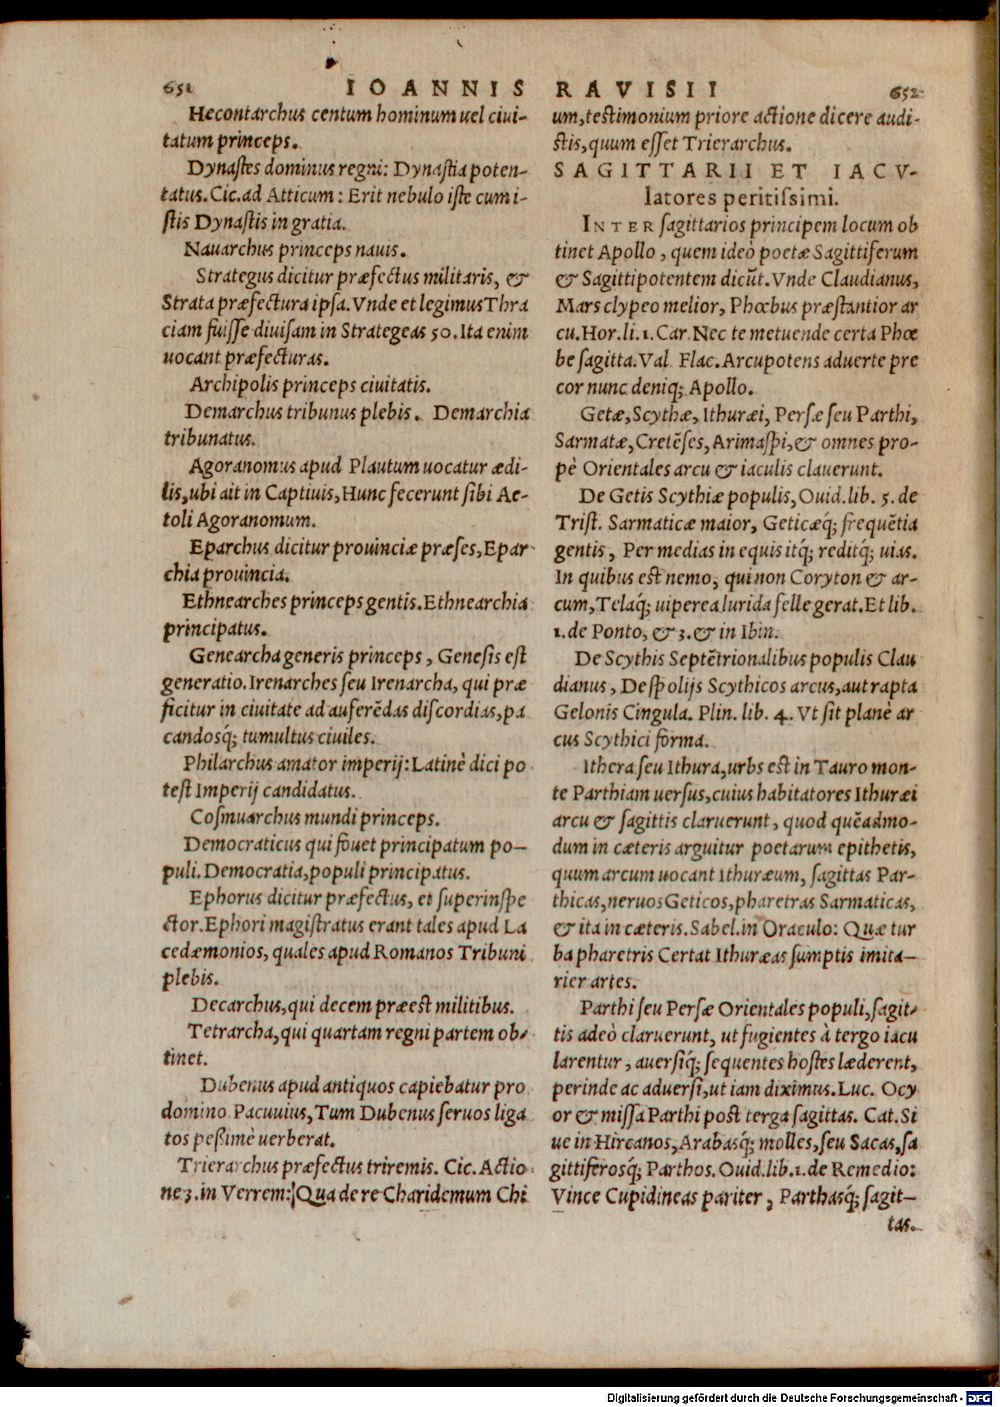 651 IOANNIS RAVISII 652
Hecontarchus centum hominum uel ciui-
tatum princeps.
Dynastes dominus regni: Dynastia poten-
tatus. Cic. ad Atticum: Erit nebulo iste cum i-
stis Dynastis in gratia.
Nauarchus princeps nauis.
Strategus dicitur præfectus militaris, &
Strata præfectura ipsa. Vnde et legimus Thra
ciam fuisse diuisam in Strategeas 50. Ita enim
uocant præfecturas.
Archipolis princeps ciuitatis.
Demarchus tribunus plebis. Demarchia
tribunatus.
Agoranomus apud Plautum uocatur ædi-
lis, ubi ait in Captiuis, Hunc fecerunt sibi Ae-
toli Agoranomum.
Eparchus dicitur prouinciæ præses, Epar-
chia prouincia.
Ethnearches princeps gentis. Ethnearchia
principatus.
Genearcha generis princeps, Genesis est
generatio. Irenarches seu Irenarcha, qui præ
ficitur in ciuitate ad auferẽdas discordias, pa
candosq́; tumultus ciuiles.
Philarchus amator imperij: Latinè dici po
test Imperij candidatus.
Cosmuarchus mundi princeps.
Democraticus qui fouet principatum po-
puli. Democratia, populi principatus.
Ephorus dicitur præfectus, et superinspe
ctor. Ephori magistratus erant tales apud La
cedæmonios, quales apud Romanos Tribuni
plebis.
Decarchus, qui decem præest militibus.
Tetrarcha, qui quartam regni partem ob-
tinet.
Dubenus apud antiquos capiebatur pro
domino Pacuuius, Tum Dubenus seruos liga
tos peßimè uerberat.
Trierarchus præfectus triremis. Cic. Actio
ne 3. in Verrem: Qua de re Charidemum Chi
um, testimonium priore actione dicere audi-
stis, quum esset Trierarchus.
SAGITTARII ET IACV-
latores peritissimi.
INTER sagittarios principem locum ob
tinet Apollo, quem ideò poetæ Sagittiferum
& Sagittipotentem dicũt. Vnde Claudianus,
Mars clypeo melior, Phœbus præstantior ar
cu. Hor. li. 1. Car. Nec te metuende certa Phœ
be sagitta. Val Flac. Arcupotens aduerte pre
cor nunc deniq; Apollo.
Getæ, Scythæ, Ithuræi, Persæ seu Parthi,
Sarmatæ, Cretẽses, Arimaspi, & omnes pro-
pè Orientales arcu & iaculis clauerunt.
De Getis Scythiæ populis, Ouid. lib. 5. de
Trist. Sarmaticæ maior, Geticæq́; frequẽtia
gentis, Per medias in equis itq́; reditq́; uias.
In quibus est nemo, qui non Coryton & ar-
cum, Telaq́; uiperea lurida felle gerat. Et lib.
1. de Ponto, & 3. & in Ibin.
De Scythis Septẽtrionalibus populis Clau
dianus, Despolijs Scythicos arcus, aut rapta
Gelonis Cingula. Plin. lib. 4. Vt sit planè ar
cus Scythici forma.
Ithera seu Ithura, urbs est in Tauro mon-
te Parthiam uersus, cuius habitatores Ithuræi
arcu & sagittis claruerunt, quod quẽadmo-
dum in cæteris arguitur poetarum epithetis,
quum arcum uocant Ithuræum, sagittas Par-
thicas, neruos Geticos, pharetras Sarmaticas,
& ita in cæteris. Sabel. in Oraculo: Quæ tur
ba pharetris Certat Ithuræas sumptis imita-
rier artes.
Parthi seu Persæ Orientales populi, sagit-
tis adeò claruerunt, ut fugientes à tergo iacu
larentur, auersiq́; sequentes hostes læderent,
perinde ac aduersi, ut iam diximus. Luc. Ocy
or & missa Parthi post terga sagittas. Cat. Si
ue in Hircanos, Arabasq́; molles, seu Sacas, sa
gittiferosq́; Parthos. Ouid. lib. 1. de Remedio:
Vince Cupidineas pariter, Parthasq́; sagit-
tas.
Digitalisierung gefördert durch die Deutsche Forschungsgemeinschaft - DFG